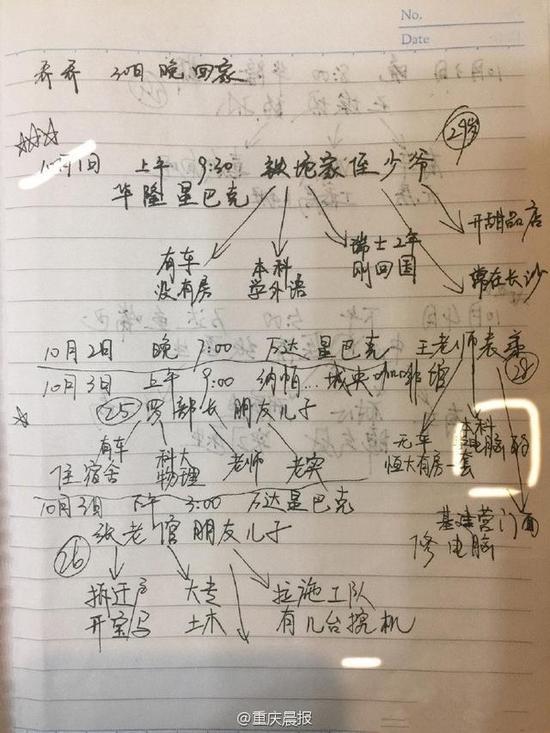 No.
Date
乔乔 30日晚回家
☆☆☆
29岁
10月1日 上午 9:30 铁坨家侄少爷
华隆星巴克
有车 没有房
本科 学外语
瑞士2年 刚回国
开甜品店
常在长沙
10月2日 晚 7:00 万达星巴克 王老师表弟
28
10月3日 上午 9:00 纳帕…城央咖啡馆
☆
25 罗部长朋友儿子
有车 住宿舍
科大 物理
老师
老实
无车 恒大有房一套
本科
电脑
基建营门面 修电脑
10月3日 下午 3:00 万达星巴克
26
张老倌朋友儿子
拆迁户 开宝马
大专 土木
拉施工队 有几台挖机
@重庆晨报